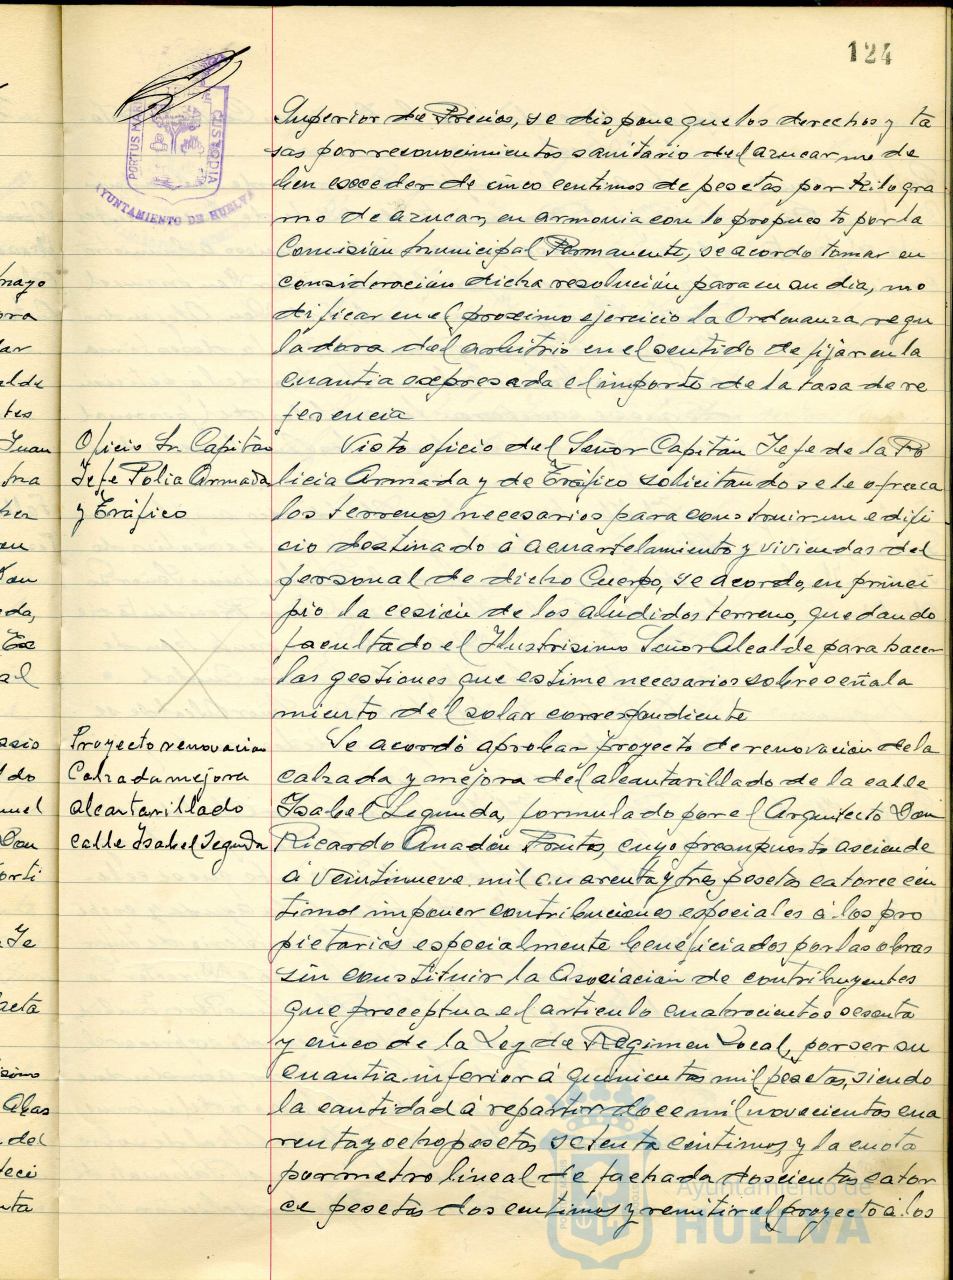 124
PORTUS MARIS
CUSTODIA
AYUNTAMIENTO DE HUELVA
Superior de Precios, se dispone que los derechos y ta
sas por reconocimientos sanitario del azucar no de
ben exceder de cinco centimos de pesetas por Kilogra
mo de azucar, en armonia con lo propuesto por la
Comisión Municipal Permanente, se acordo tomar en
consideración dicha resolución para en su dia, mo
dificar en el proximo ejercicio la Ordenanza regu
ladora del arbitrio en el sentido de fijar en la
cuantia expresada el importe de la tasa de re
ferencia
Oficio Sr. Capitan
Jefe Polia Armada
y Tráfico
Visto oficio del Señor Capitán Jefe de la Po
licia Armada y de Tráfico solicitando se le ofrezca
los terrenos necesarios para construir un edifi
cio destinado á acuartelamiento y viviendas del
personal de dicho Cuerpo, se acordo, en princi
pio la cesión de los aludidos terreno, quedando
facultado el Ilustrisimo Señor Alcalde para hacer
las gestiones que estime necesarios sobre señala
miento del solar correspondiente
Proyecto renovacion
Calzada mejora
alcantarillado
calle Isabel Segunda
Se acordó aprobar proyecto de renovación de la
calzada y mejora del alcantarillado de la calle
Isabel Segunda, formulado por el Arquitecto Don
Ricardo Anadón Frutos, cuyo presupuesto asciende
á veintinueve mil cuarenta y tres pesetas catorce cén
timos imponer contribuciones especiales á los pro
pietarios especialmente beneficiados por las obras
sin constituir la Asociación de contribuyentes
que preceptua el articulo cuatrocientos sesenta
y cinco de la Ley de Regimen Local, por ser su
cuantia inferior á quinientas mil pesetas, siendo
la cantidad á repartir doce mil novecientos cua
renta y ocho pesetas setenta céntimos y la cuota
por metro lineal de fachada doscientas cator
ce pesetas dos centimos y remitir el proyecto á los
Ayuntamiento de
HUELVA